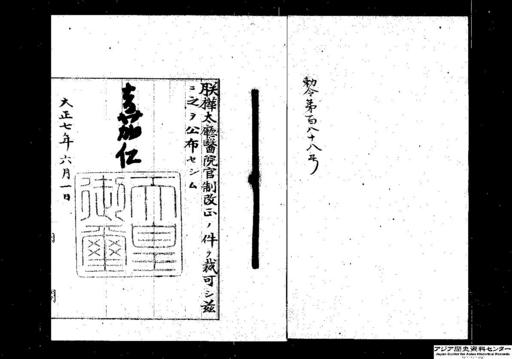 勅令第百八十八号
朕樺太廳醫院官制改正ノ件ヲ裁可シ茲
ニ之ヲ公布セシム
嘉仁
天皇御璽
大正七年六月一日
アジア歴史資料センター
Japan Center for Asian Historical Records